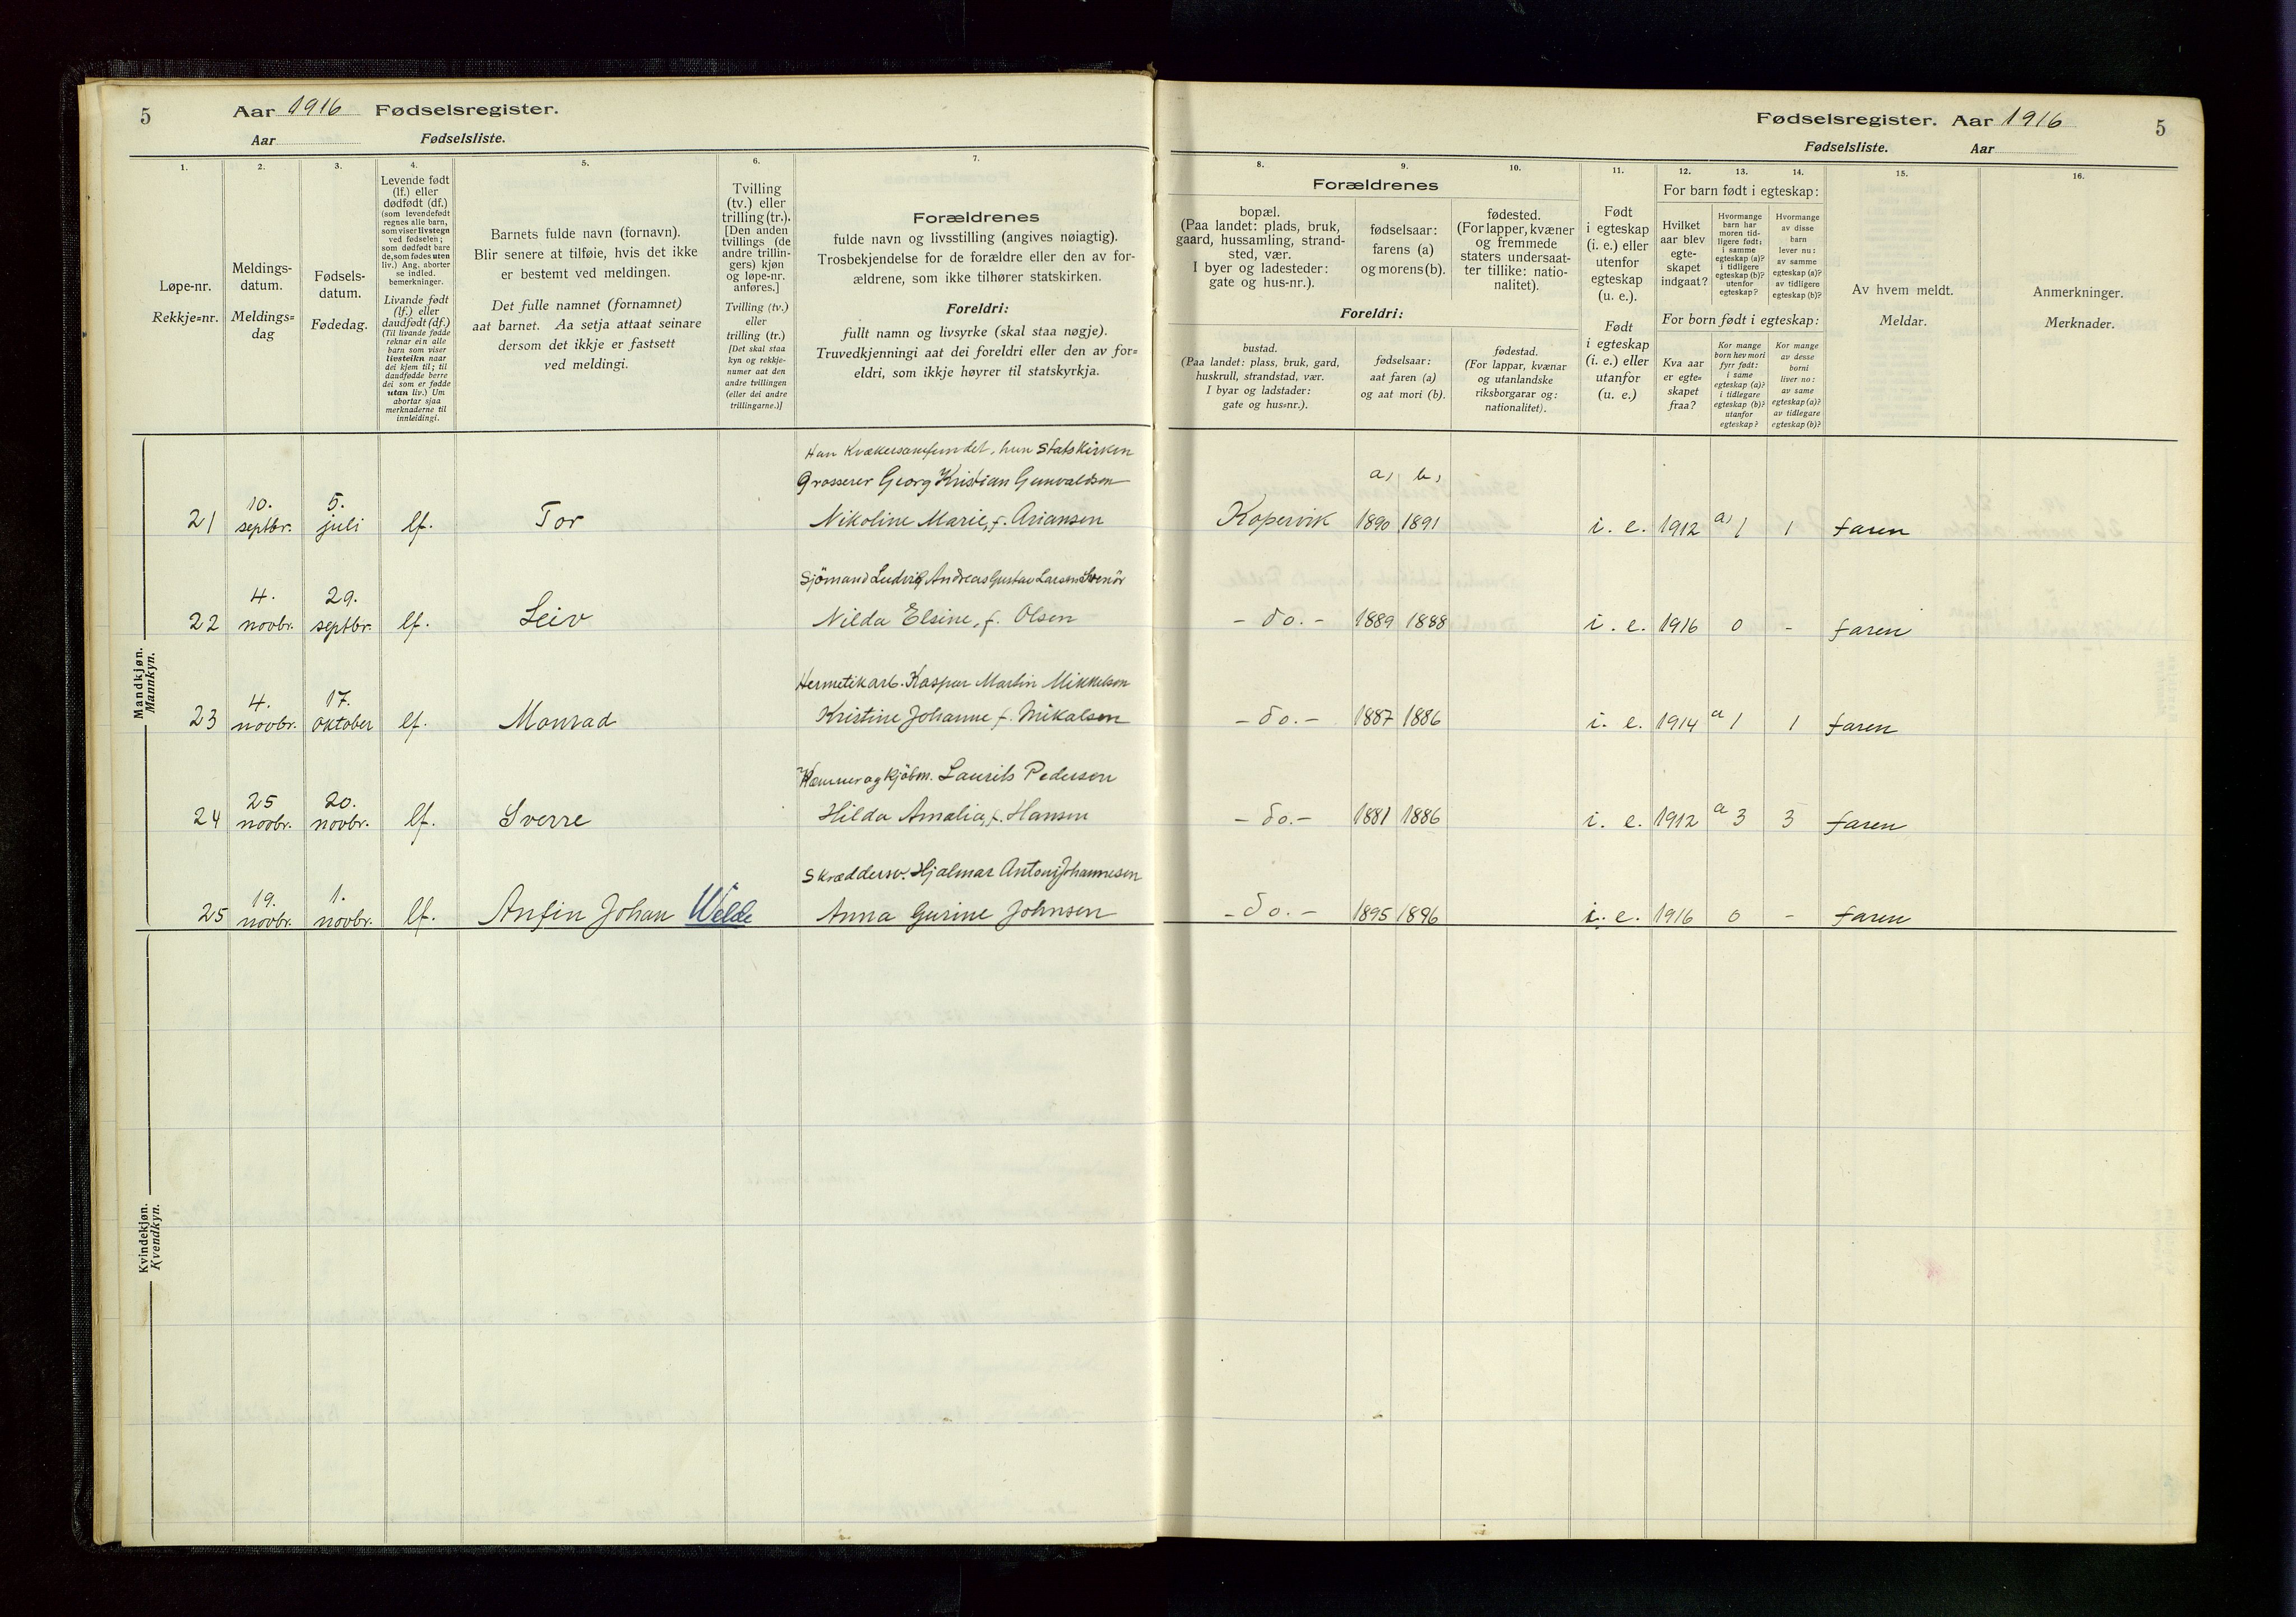 5
Aar 1916 Fødselsregister.
Aar Fødselsliste.
1.
2.
3.
4.
5.
6.
7.
Løpe-nr.
Rekkje=nr.
Meldings-
datum.
Meldings=
dag
Fødsels-
datum.
Fødedag.
Levende født
(lf.) eller
dødfødt (df.)
(som levendefødt
regnes alle barn,
som viser livstegn
ved fødselen;
som dødfødt bare
de, som fødes uten
liv.) Ang. aborter
se indled.
bemerkninger.
Livande født
(lf.) eller
daudfødt (df.)
(Til livande fødde
reknar ein alle
barn som viser
livsteikn naar
dei kjem til; til
daudfødde berre
dei som er fødde
utan liv.) Um
abortar sjaa
merknaderne til
innleidingi.
Barnets fulde navn (fornavn).
Blir senere at tilføie, hvis det ikke
er bestemt ved meldingen.
Det fulle namnet (fornamnet)
aat barnet. Aa setja attaat seinare
dersom det ikkje er fastsett
ved meldingi.
Tvilling
(tv.) eller
trilling (tr.).
[Den anden
tvillings (de
andre trillin-
gers) kjøn
og løpe-nr.
anføres.]
Tvilling (tv.)
eller
trilling (tr.)
[Det skal staa
kyn og rekkje-
numer aat den
andre tvillingen
(eller dei andre
trillingarne.)]
Forældrenes
fulde navn og livsstilling (angives nøiagtig).
Trosbekjendelse for de forældre eller den av for-
ældrene, som ikke tilhører statskirken.
Foreldri:
fullt namn og livsyrke (skal staa nøgje).
Truvedkjenningi aat dei foreldri eller den av for=
eldri, som ikkje høyrer til statskyrkja.
Mandkjøn.
Mannkyn.
Han Kvækersamfundet, hun Statskirken
Grosserer Georg Kristian Gunvaldsen
21 10. septbr. 5. juli lf. Tor Nikoline Marie, f. Ariansen
Sjömand Ludvig Andreas Gustav Larsen Svenör
22 4. novbr. 29. septbr. lf. Leiv Nilda Elsine, f. Olsen
Hermetikarb. Kaspar Martin Mikkelsen
23 4. novbr. 17. oktober lf. Monrad Kristine Johanne f. Mikalsen
og kjøbm. Laurits Pedersen
24 25 novbr. 20. novbr. lf. Sverre Hilda Amalia, f. Hansen
Skræddersv. Hjalmar Anton Johannesen
25 19. novbr. 1. novbr. lf. Anfin Johan Welde Anna Gurine Johnsen
Kvindekjøn.
Kvendkyn.
Fødselsregister. Aar 1916
5
Fødselsliste. Aar
8.
9.
10.
11.
12.
13.
14.
15.
16.
Forældrenes
bopæl.
(Paa landet: plads, bruk,
gaard, hussamling, strand-
sted, vær.
I byer og ladesteder:
gate og hus-nr.).
fødselsaar:
farens (a)
og morens (b).
fødested.
(For lapper, kvæner
og fremmede
staters undersaat-
ter tillike: natio-
nalitet).
Foreldri:
bustad.
(Paa landet: plass, bruk, gard,
huskrull, strandstad, vær.
I byar og ladstader:
gate og hus=nr.).
fødselsaar:
aat faren (a)
og aat mori (b).
fødestad.
(For lappar, kvænar
og utanlandske
riksborgarar og:
nationalitet).
Født
i egteskap
(i. e.) eller
utenfor
egteskap
(u. e.).
Født
i egteskap
(i. e.) eller
utanfor
(u. e.)
For barn født i egteskap:
Hvilket
aar blev
egte-
skapet
indgaat?
Hvormange
barn har
moren tid-
ligere født:
i samme
egteskap (a)?
i tidligere
egteskap (b)?
utenfor
egteskap?
Hvormange
av disse
barn
lever nu:
av samme
egteskap (a)?
av tidligere
egteskap (b)?
For born født i egteskap:
Kva aar
er egte=
skapet
fraa?
Kor mange
born hev mori
fyrr født:
i same
egteskap (a)?
i tidlegare
egteskap (b)?
utanfor
egteskap?
Kor mange
av desse
borni
liver no:
av same
egteskap (a)?
av tidlegare
egteskap (b)?
Av hvem meldt.
Meldar.
Anmerkninger.
Merknader.
a, b,
Kopervik 1890 1891 i. e. 1912 a, 1 1 faren
- do. - 1889 1888 i. e. 1916 0 - faren
- do. - 1887 1886 i. e. 1914 a 1 1 faren
- do. - 1881 1886 i. e. 1912 a 3 3 faren
- do. - 1895 1896 i. e. 1916 0 - faren